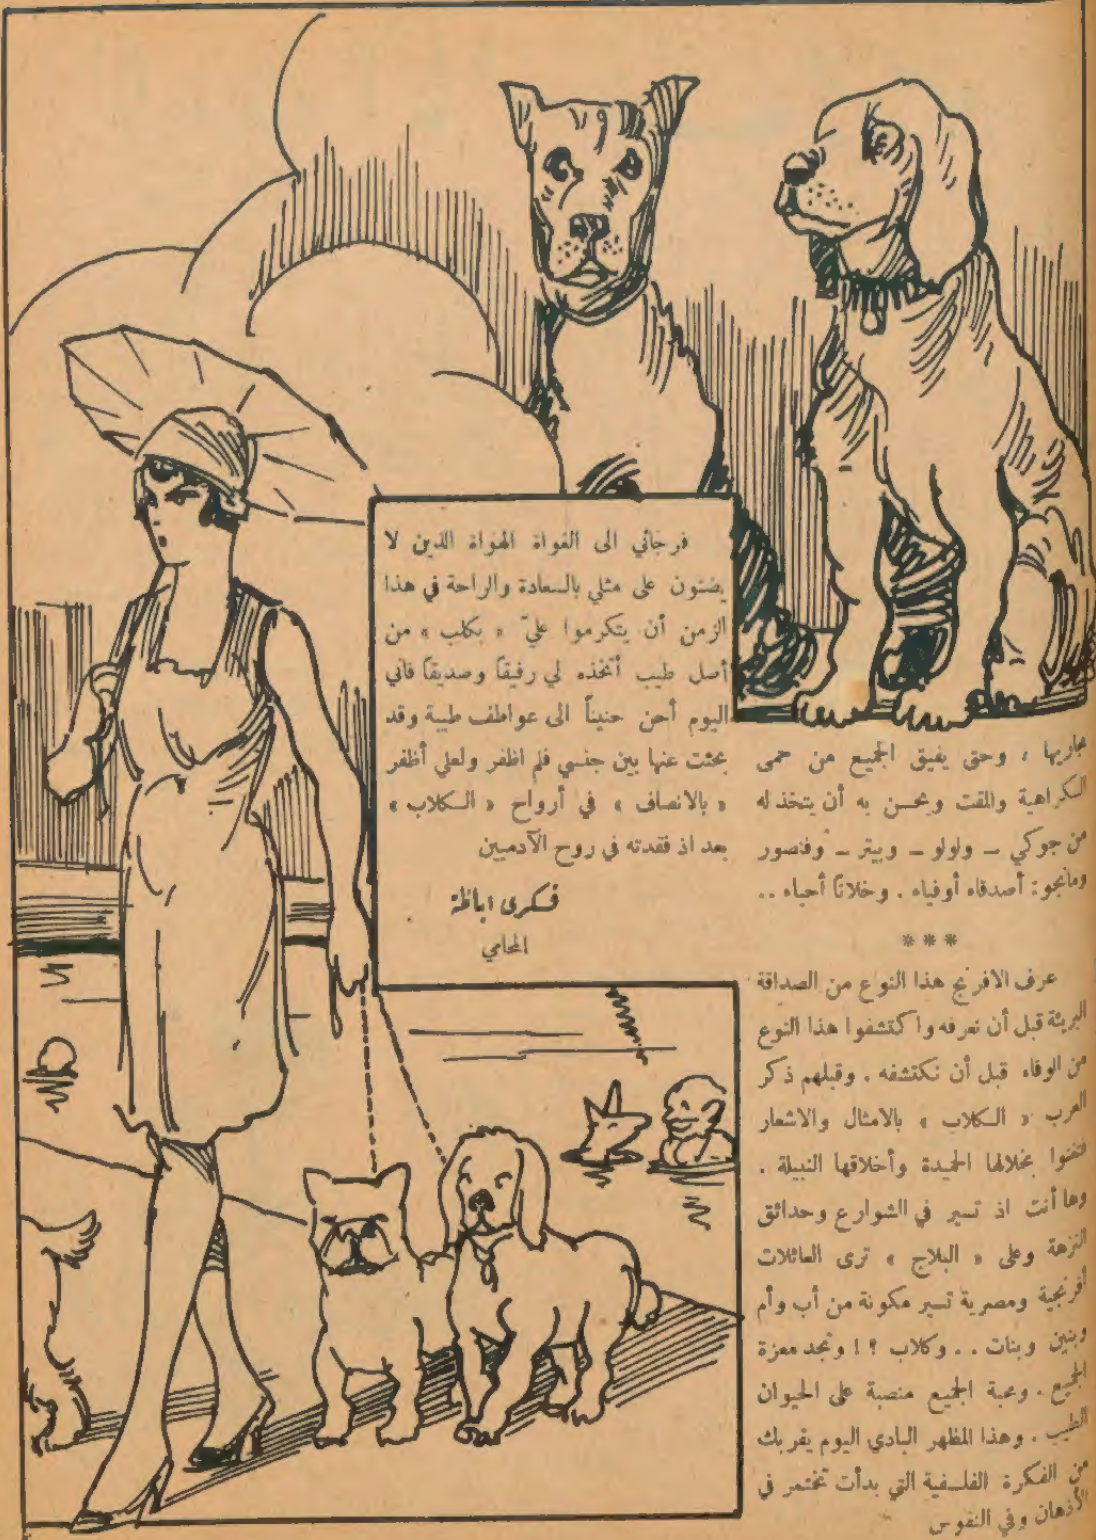 مجاريها ، وحتى يفيق الجميع من حمى
الكراهية والمقت ويحسن به أن يتخذ له
من جوكي – ولولو – وبيتر – وفنصور
ومانجو : أصدقاء أوفياء . وخلاناً أحباء . .
***
عرف الافرنج هذا النوع من الصداقة
البريئة قبل أن نعرفه واكتشفوا هذا النوع
من الوفاء قبل أن نكتشفه . وقبلهم ذكر
العرب « الكلاب » بالامثال والاشعار
فتغنوا بخلالها الحميدة وأخلاقها النبيلة .
وها أنت اذ تسير في الشوارع وحدائق
النزهة وعلى « البلاج » ترى العائلات
أفرنجية ومصرية تسير مكونة من أب وأم
وبنين وبنات . . وكلاب ؟ ! وتجد معزة
الجميع . ومحبة الجميع منصبة على الحيوان
الطيب . وهذا المظهر البادي اليوم يقربك
من الفكرة الفلسفية التي بدأت تختمر في
الأذهان وفي النفوس
فرجائي الى الغواة الهواة الذين لا
يضنون على مثلي بالسعادة والراحة في هذا
الزمن أن يتكرموا عليّ « بكلب » من
أصل طيب أتخذه لي رفيقاً وصديقاً فاني
اليوم أحن حنيناً الى عواطف طيبة وقد
بحثت عنها بين جنسي فلم اظفر ولعلي أظفر
« بالانصاف » في أرواح « الكلاب »
بعد اذ فقدته في روح الآدميين
فكرى اباظة
المحامي